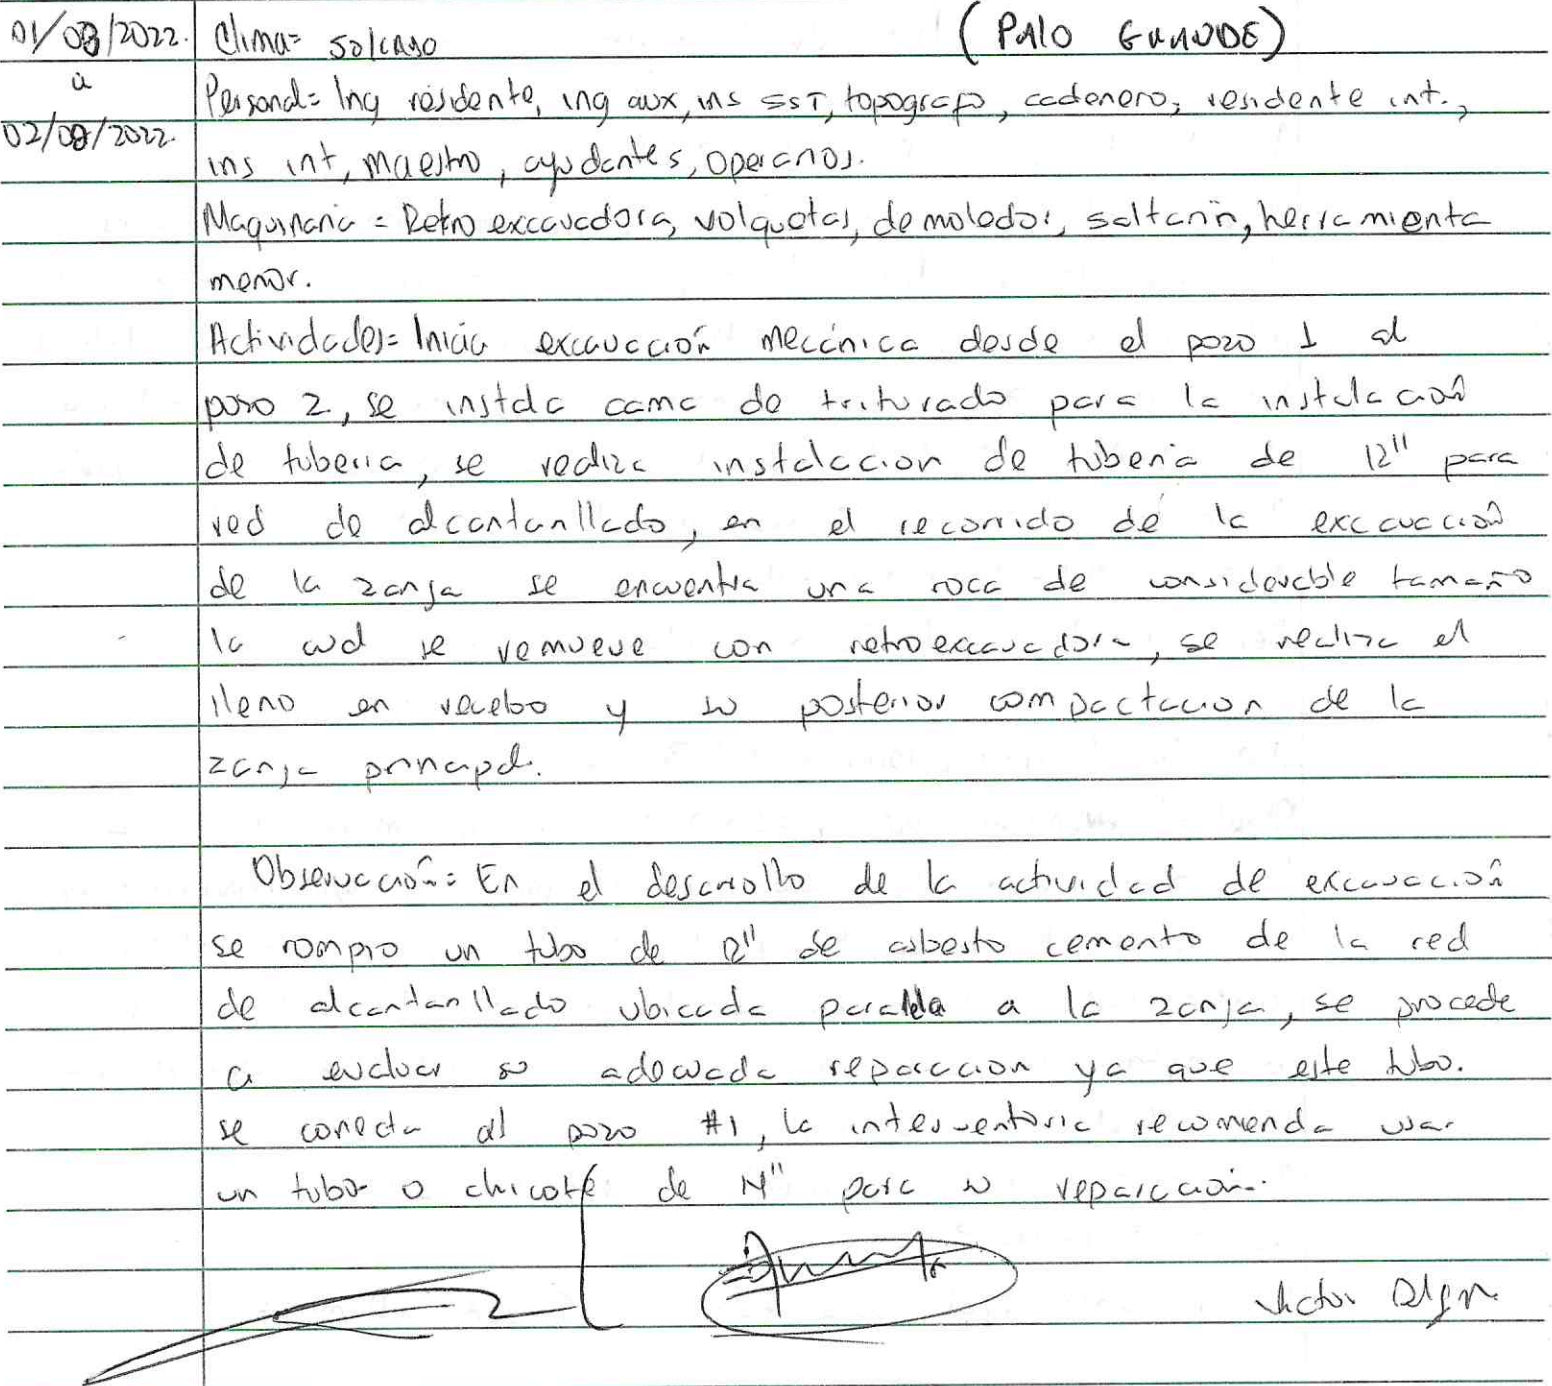 01/08/2022. Clima= soleado (PALO GRANDE)
a Personal= Ing residente, ing aux, ins SST, topografo, cadenero, residente int.,
02/08/2022. ins int, maestro, ayudantes, operarios.
Maquinaria = Retroexcavadora, volquetas, demoledor, saltarin, herramienta
menor.
Actividades= Inicia excavación mecánica desde el pozo 1 al
pozo 2, se instala cama de triturado para la instalación
de tuberia, se realiza instalacion de tuberia de 12" para
red de alcantarillado, en el recorrido de la excavación
de la zanja se encuentra una roca de considerable tamaño
la cual se remueve con retroexcavadora, se realiza el
lleno en recebo y su posterior compactacion de la
zanja principal.
Observación= En el desarrollo de la actividad de excavación
se rompio un tubo de 12" de asbesto cemento de la red
de alcantarillado ubicada paralela a la zanja, se procede
a evaluar su adecuada reparacion ya que este tubo.
se conecta al pozo #1, la interventoria recomienda usar
un tubo o chicote de 14" para su reparación.
Victor